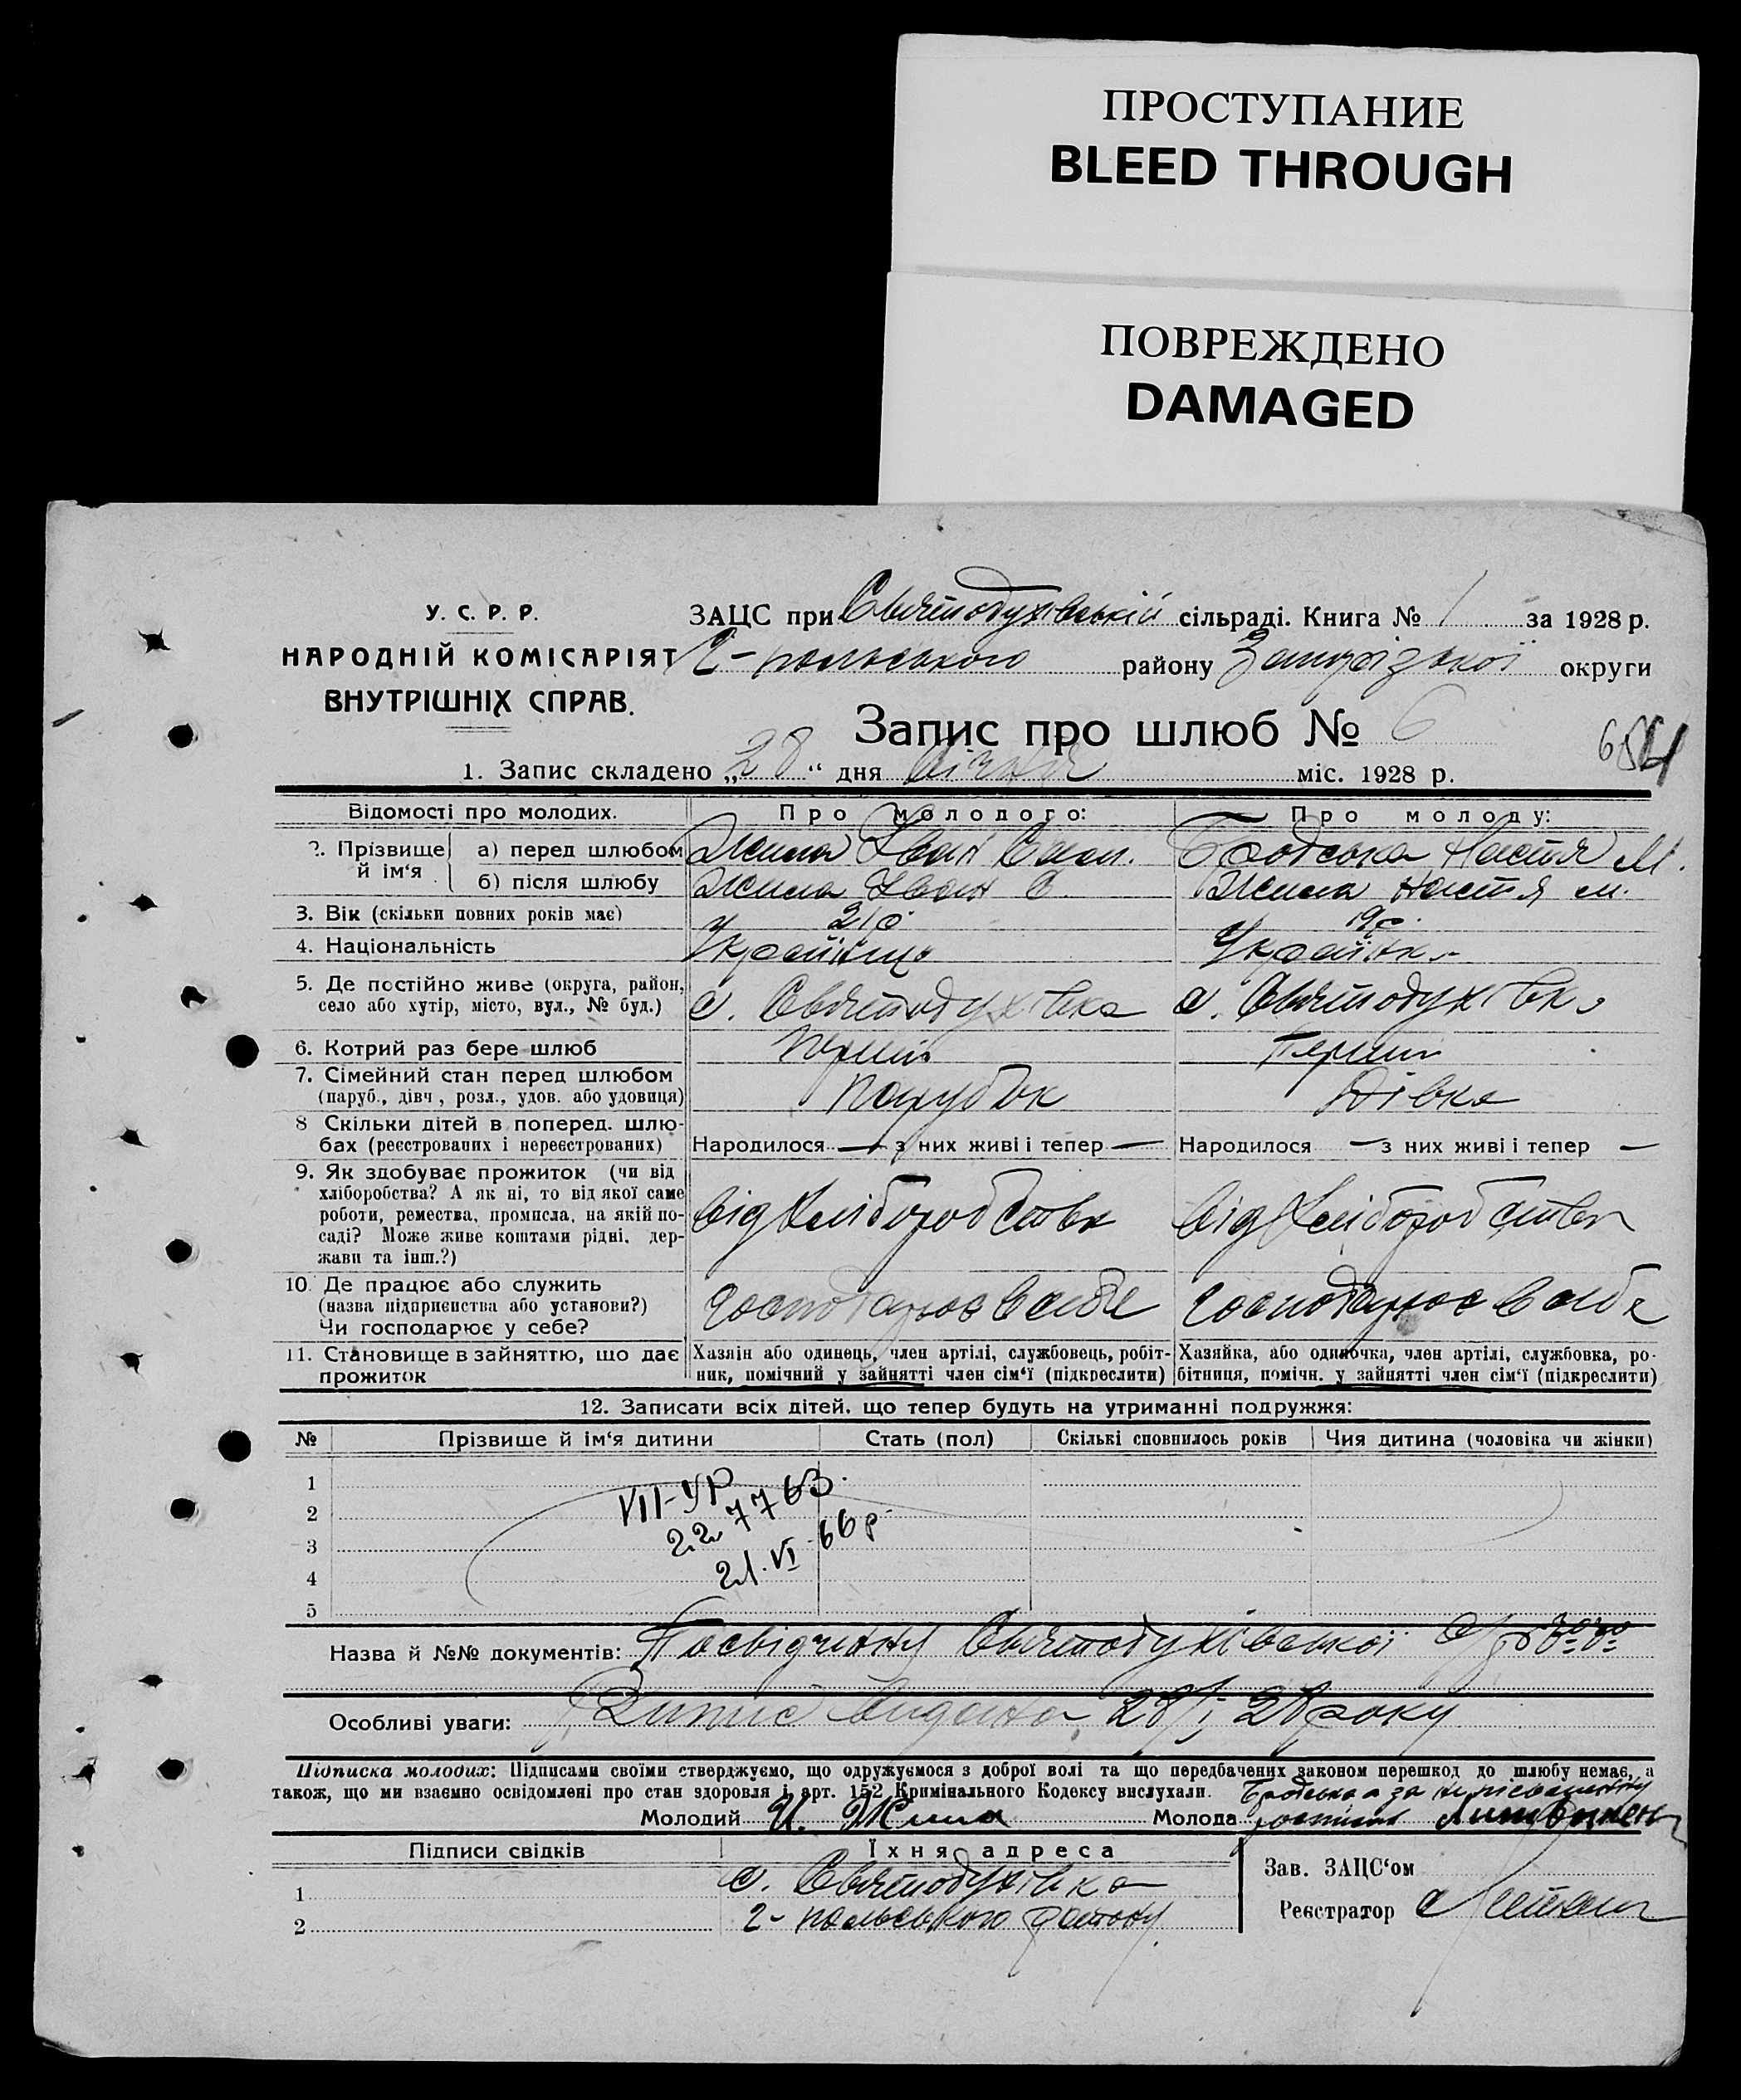 ПРОСТУПАНИЕ
BLEED THROUGH
ПОВРЕЖДЕНО
DAMAGED
У. С. Р. Р.
НАРОДНІЙ КОМІСАРІЯТ
ВНУТРІШНІХ СПРАВ.
ЗАЦС при Святодухівській сільраді. Книга № 1 за 1928 р.
2-польського району Запорізької округи
Запис про шлюб № 6
1. Запис складено „28“ дня січня міс. 1928 р.
Відомості про молодих. Про молодого: Про молоду:
2. Прізвище й ім‘я а) перед шлюбом Жила Іван Бродська Настя М.
б) після шлюбу Жила Іван С. Жила Настя М.
3. Вік (скільки повних років має) 21р 19р.
4. Національність Українець Українка
5. Де постійно живе (округа, район, село або хутір, місто, вул., № буд.) с. Святодухівка с. Святодухівка
6. Котрий раз бере шлюб Перший Перший
7. Сімейний стан перед шлюбом (паруб., дівч., розл., удов. або удовиця) Парубок Дівка
8 Скільки дітей в поперед. шлюбах (реєстрованих і нереєстрованих) Народилося — з них живі і тепер — Народилося — з них живі і тепер —
9. Як здобуває прожиток (чи від хліборобства? А як ні, то від якої саме роботи, ремества, промисла, на якій посаді? Може живе коштами рідні, держави та інш.?) від хліборобства від хліборобства
10. Де працює або служить (назва підприєнства або установи?) Чи господарює у себе? господарює в себе господарює в себе
11. Становище в зайняттю, що дає прожиток Хазяїн або одинець, член артілі, службовець, робітник, помічний у зайнятті член сім‘ї (підкреслити) Хазяйка, або одиночка, член артілі, службовка, робітниця, помічн. у зайнятті член сім‘ї (підкреслити)
12. Записати всіх дітей, що тепер будуть на утриманні подружжя:
№ Прізвище й ім‘я дитини Стать (пол) Скількі сповнилось років Чия дитина (чоловіка чи жінки)
1
2
3
4
5
VII-УР
227763.
21.VI-66р.
Назва й №№ документів: Посвідчання Святодухівської с/р
Особливі уваги: Випис видано 28/I 28 року
Підписка молодих: Підписами своїми стверджуємо, що одружуємося з доброї волі та що передбачених законом перешкод до шлюбу немає, а
також, що ми взаємно освідомлені про стан здоровля і арт. 152 Кримінального Кодексу вислухали.
Бродська а за не
Молодий И. Жила Молода
Підписи свідків Їхня адреса
1 с. Святодухівка
2 2-польського району.
Зав. ЗАЦС‘ом
Реєстратор